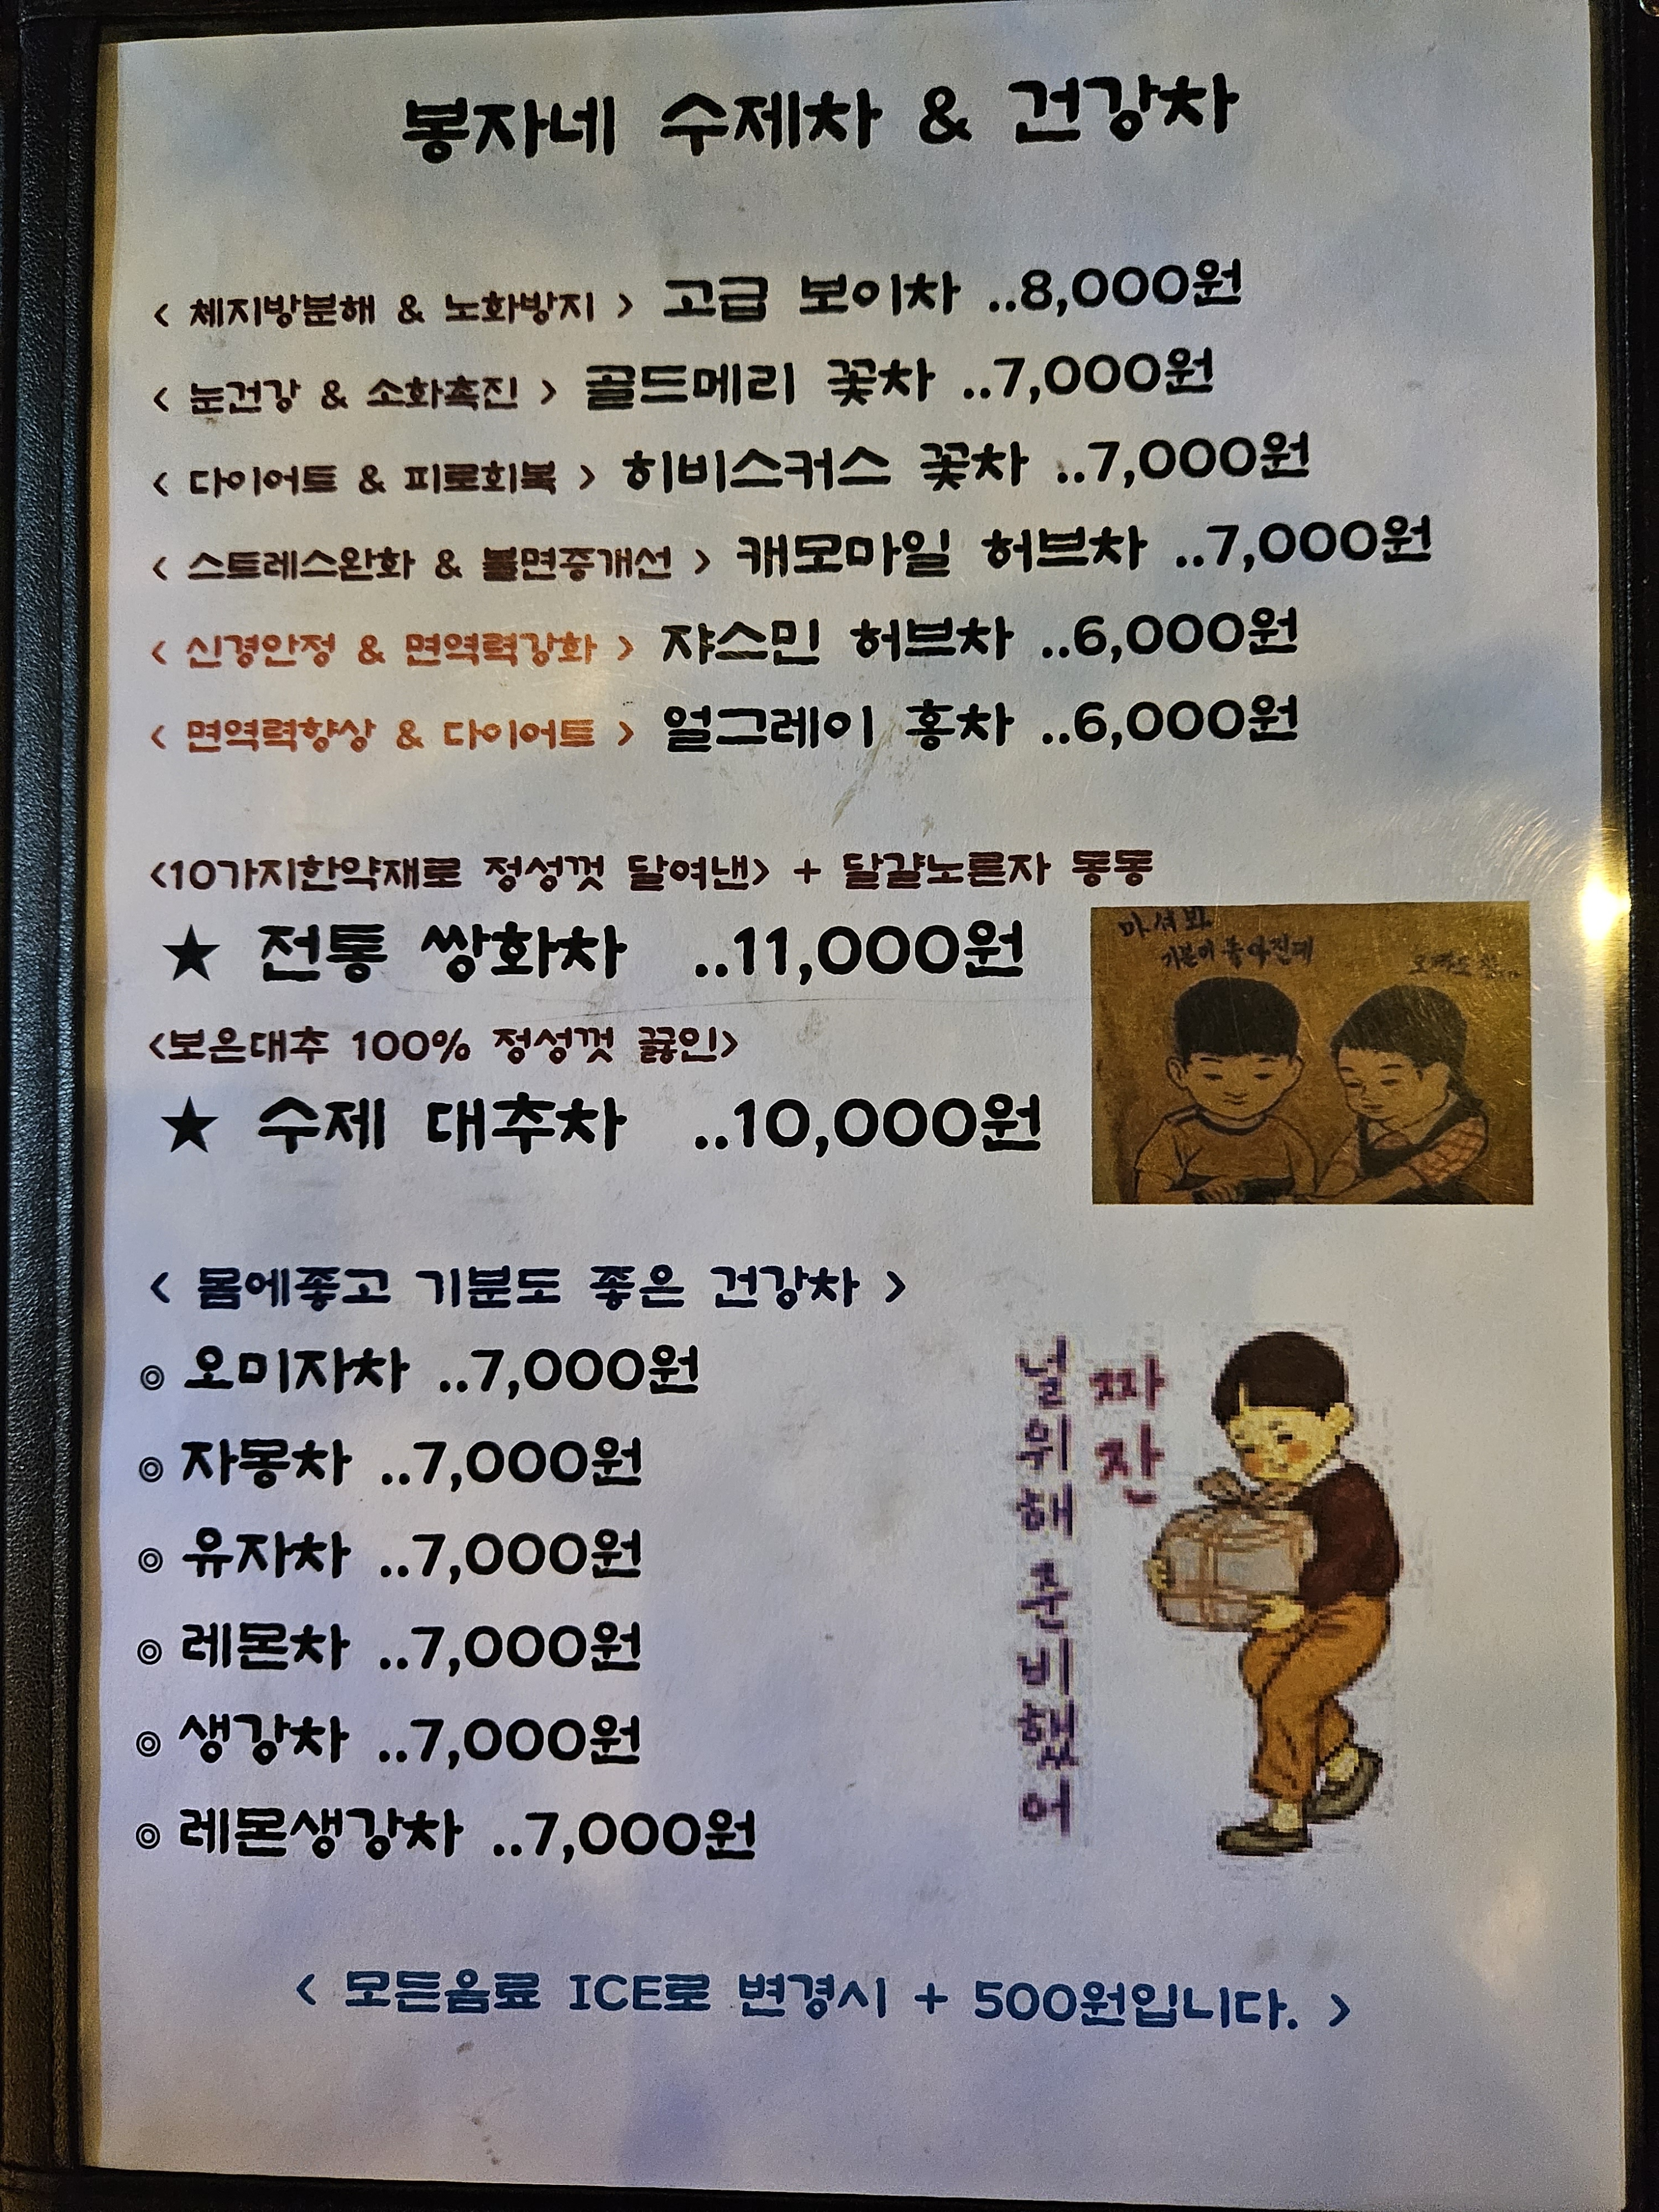 봉자네 수제차 & 건강차
< 체지방분해 & 노화방지 > 고급 보이차 ..8,000원
< 눈건강 & 소화촉진 > 골드메리 꽃차 ..7,000원
< 다이어트 & 피로회복 > 히비스커스 꽃차 ..7,000원
< 스트레스완화 & 불면증개선 > 캐모마일 허브차 ..7,000원
< 신경안정 & 면역력강화 > 쟈스민 허브차 ..6,000원
< 면역력향상 & 다이어트 > 얼그레이 홍차 ..6,000원
<10가지한약재로 정성껏 달여낸> + 달걀노른자 동동
★ 전통 쌍화차 ..11,000원
<보은대추 100% 정성껏 끓인>
★ 수제 대추차 ..10,000원
마셔봐
기분이 좋아진데
< 몸에좋고 기분도 좋은 건강차 >
◎ 오미자차 ..7,000원
◎ 자몽차 ..7,000원
◎ 유자차 ..7,000원
◎ 레몬차 ..7,000원
◎ 생강차 ..7,000원
◎ 레몬생강차 ..7,000원
짜잔
널위해준비했어
< 모든음료 ICE로 변경시 + 500원입니다. >